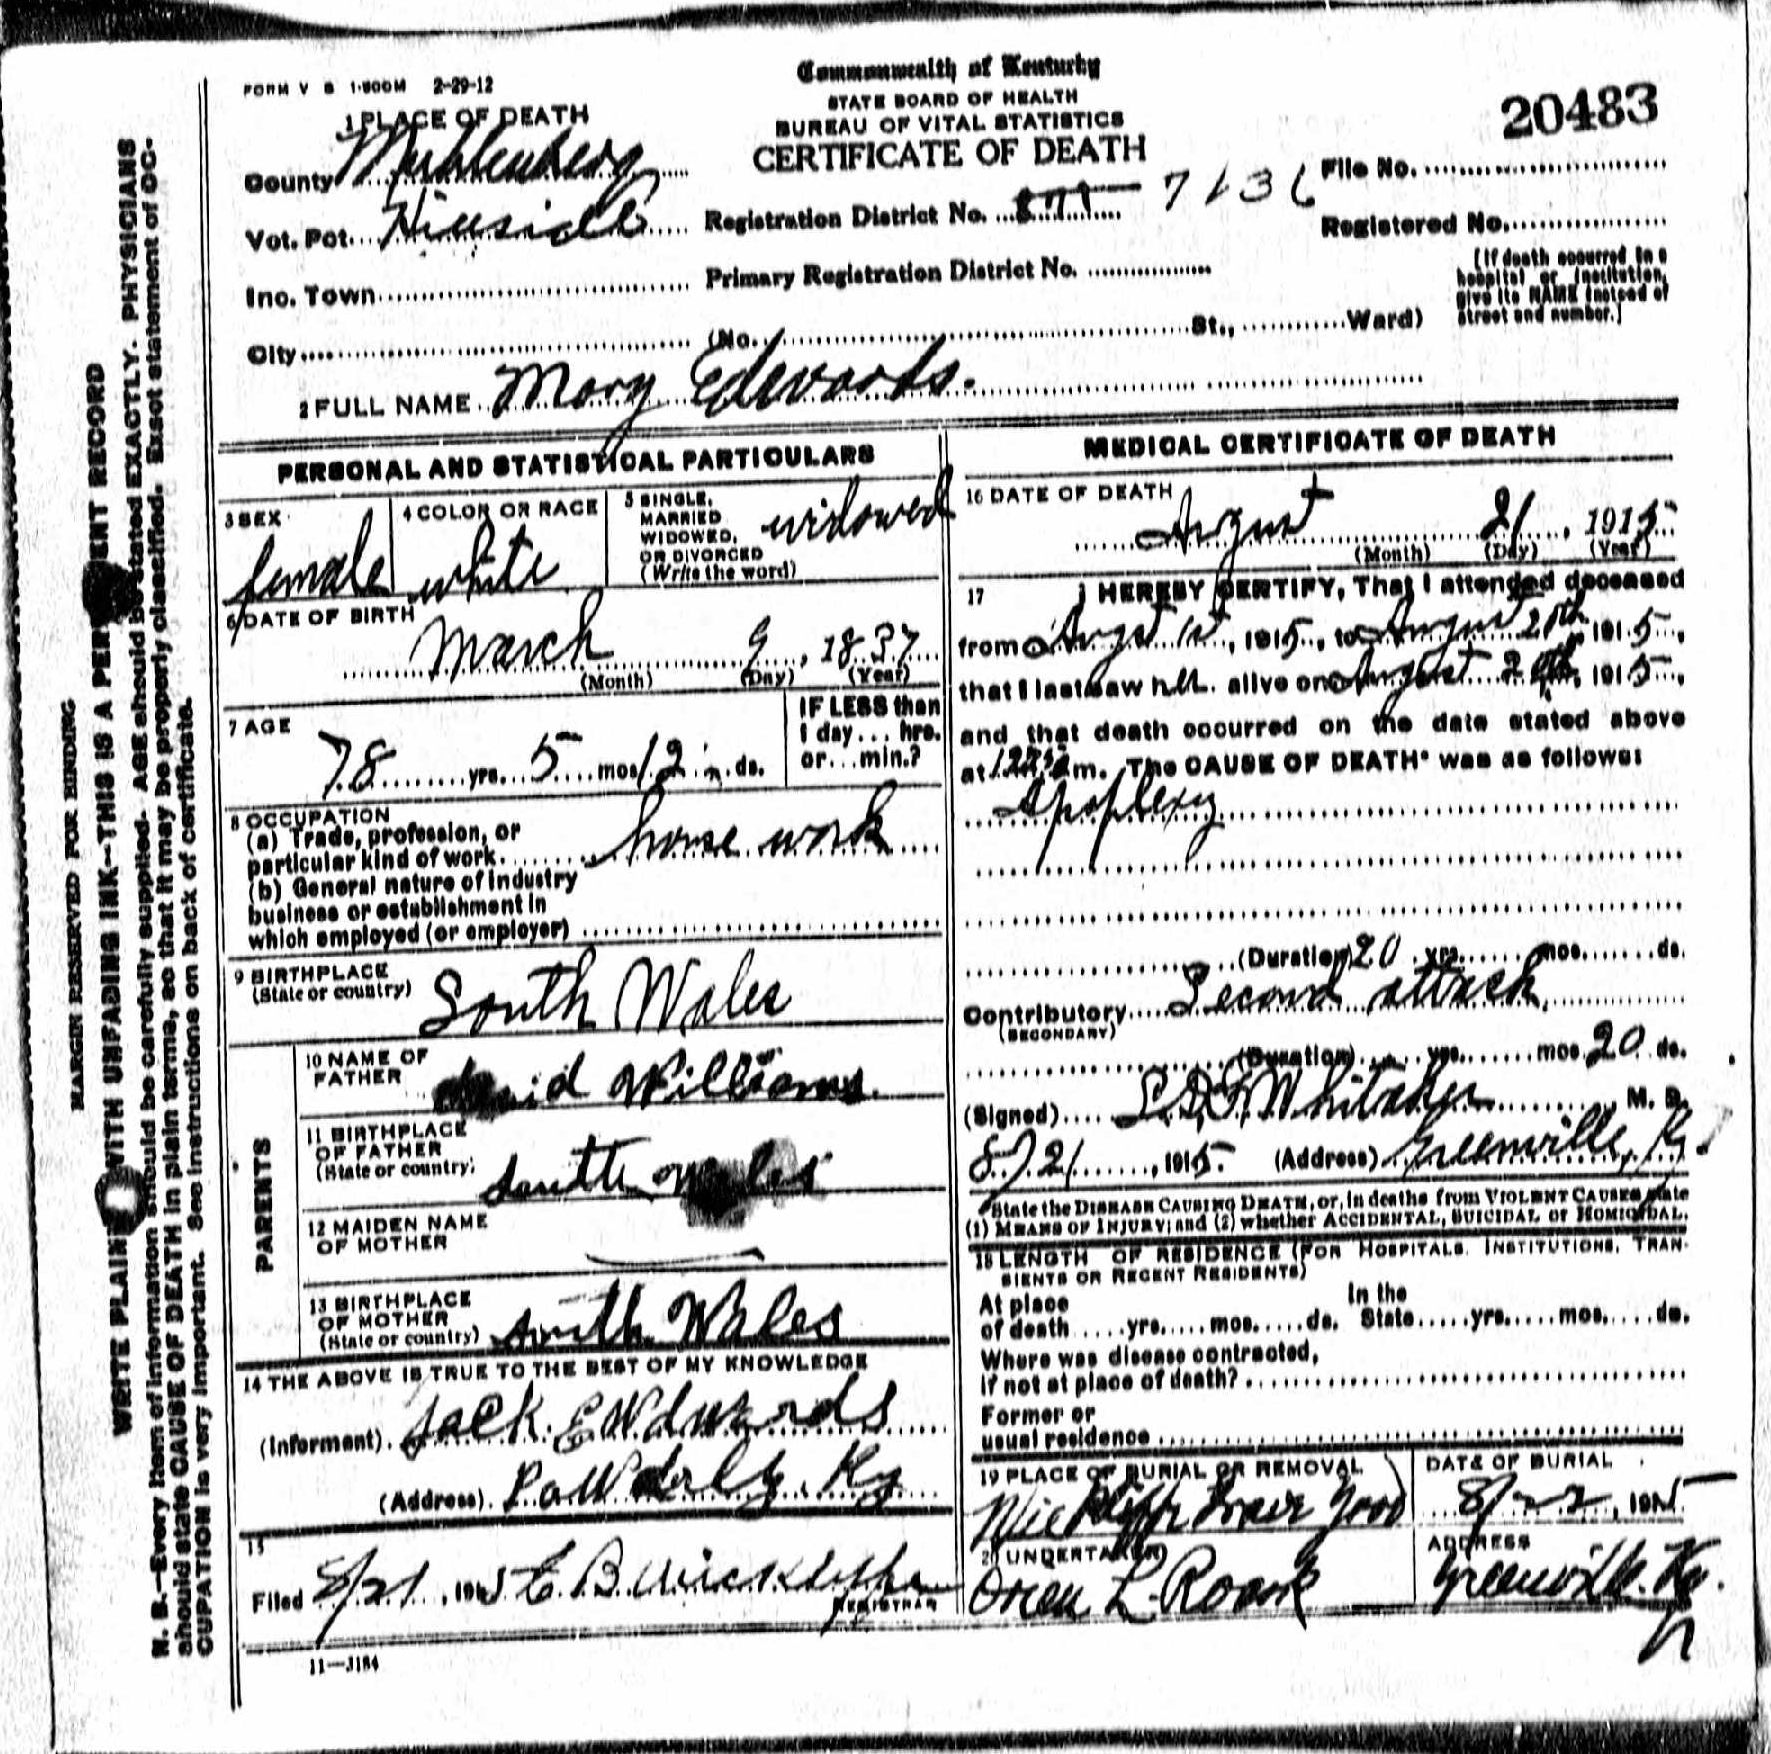 FORM V S 1-500M 2-29-12
Commonwealth of Kentucky
STATE BOARD OF HEALTH
BUREAU OF VITAL STATISTICS
CERTIFICATE OF DEATH
20483
1 PLACE OF DEATH
County Muhlenberg
Vot. Pct. Hillside
Inc. Town
City
Registration District No. 871 7136
Primary Registration District No.
(No. St., Ward)
File No.
Registered No.
[If death occurred in a
hospital or institution,
give its NAME instead of
street and number.]
2 FULL NAME Mary Edwards.
PERSONAL AND STATISTICAL PARTICULARS
3 SEX
female
4 COLOR OR RACE
white
5 SINGLE,
MARRIED
WIDOWED,
OR DIVORCED
(Write the word)
widowed
6 DATE OF BIRTH
March 9, 1837
(Month) (Day) (Year)
7 AGE
78 yrs. 5 mos. 12 ds.
IF LESS than
1 day... hrs.
or... min.?
8 OCCUPATION
(a) Trade, profession, or
particular kind of work house work
(b) General nature of industry
business or establishment in
which employed (or employer)
9 BIRTHPLACE
(State or country) South Wales
PARENTS
10 NAME OF
FATHER david Williams.
11 BIRTHPLACE
OF FATHER
(State or country) South Wales
12 MAIDEN NAME
OF MOTHER
13 BIRTHPLACE
OF MOTHER
(State or country) South Wales
14 THE ABOVE IS TRUE TO THE BEST OF MY KNOWLEDGE
(Informant) Jack Edwards
(Address) Powderly, Ky
15
Filed 8/21, 1915 E. B. Wickliffe
REGISTRAR
11—J184
MEDICAL CERTIFICATE OF DEATH
16 DATE OF DEATH
August 21, 1915
(Month) (Day) (Year)
17 I HEREBY CERTIFY, That I attended deceased
from August 1st, 1915, to August 20th, 1915,
that I last saw her alive on August 20th, 1915,
and that death occurred on the date stated above
at m. The CAUSE OF DEATH* was as follows:
Apoplexy
(Duration) 20 yrs. mos. ds.
Contributory Second attack
(SECONDARY)
(Duration) yrs. mos. 20 ds.
(Signed) Whitaker M. D.
8/21, 1915. (Address) Greenville, Ky
*State the DISEASE CAUSING DEATH, or, in deaths from VIOLENT CAUSES state
(1) MEANS OF INJURY; and (2) whether ACCIDENTAL, SUICIDAL or HOMICIDAL.
18 LENGTH OF RESIDENCE (FOR HOSPITALS, INSTITUTIONS, TRAN-
SIENTS OR RECENT RESIDENTS)
At place In the
of death yrs. mos. ds. State yrs. mos. ds.
Where was disease contracted,
if not at place of death?
Former or
usual residence
19 PLACE OF BURIAL OR REMOVAL
Wickliffe Grave Yard
DATE OF BURIAL
8/22, 1915
20 UNDERTAKER
Orien L. Roark
ADDRESS
Greenville, Ky.
MARGIN RESERVED FOR BINDING
WRITE PLAINLY WITH UNFADING INK—THIS IS A PERMANENT RECORD
N. B.—Every item of information should be carefully supplied. AGE should be stated EXACTLY. PHYSICIANS
should state CAUSE OF DEATH in plain terms, so that it may be properly classified. Exact statement of OC-
CUPATION is very important. See instructions on back of certificate.